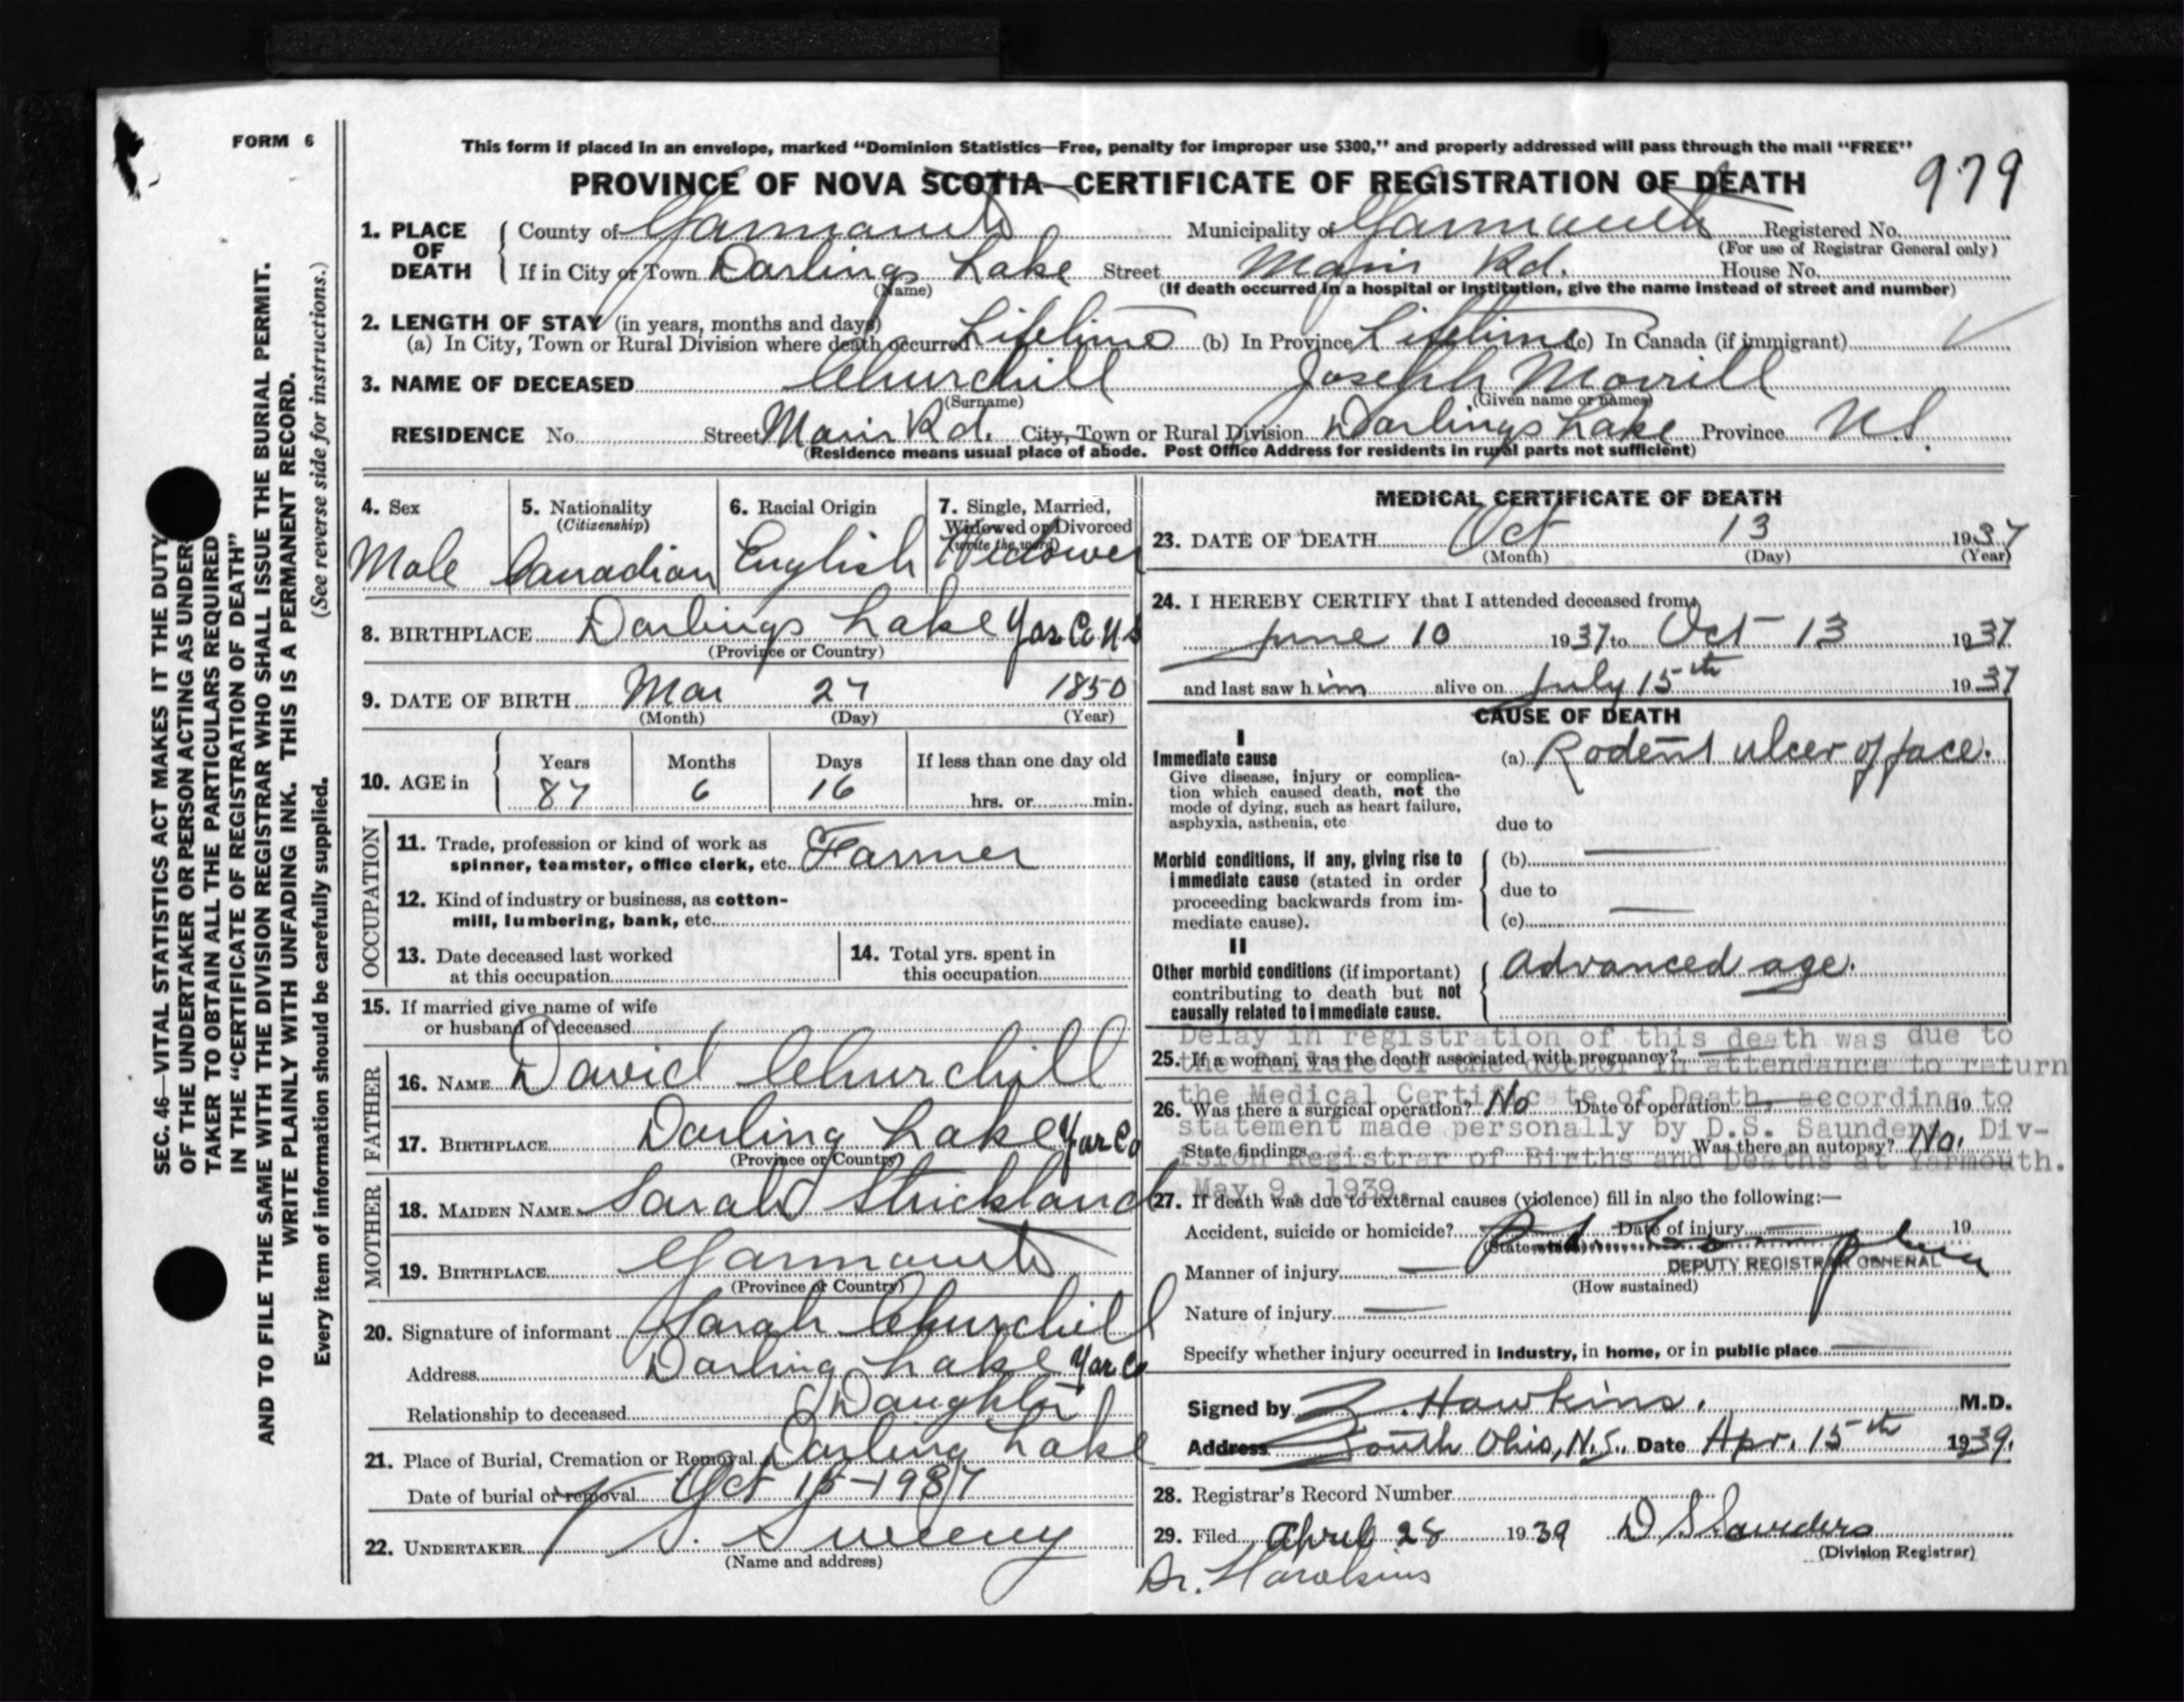 FORM 6
This form if placed in an envelope, marked “Dominion Statistics—Free, penalty for improper use $300,” and properly addressed will pass through the mail “FREE”
PROVINCE OF NOVA SCOTIA—CERTIFICATE OF REGISTRATION OF DEATH
979
1. PLACE OF DEATH
County of Yarmouth Municipality of Yarmouth Registered No.
(For use of Registrar General only)
If in City or Town Darlings Lake Street Main Rd. House No.
(Name) (If death occurred in a hospital or institution, give the name instead of street and number)
2. LENGTH OF STAY (in years, months and days)
(a) In City, Town or Rural Division where death occurred Lifetime (b) In Province Lifetime (c) In Canada (if immigrant)
3. NAME OF DECEASED Churchill Joseph Morrill
(Surname) (Given name or names)
RESIDENCE No. Street Main Rd. City, Town or Rural Division Darlings Lake Province N.S.
(Residence means usual place of abode. Post Office Address for residents in rural parts not sufficient)
4. Sex
Male
5. Nationality
(Citizenship)
Canadian
6. Racial Origin
English
7. Single, Married,
Widowed or Divorced
(write the word)
Widower
8. BIRTHPLACE Darlings Lake Yar Co N S
(Province or Country)
9. DATE OF BIRTH Mar 27 1850
(Month) (Day) (Year)
10. AGE in
Years Months Days If less than one day old
87 6 16 hrs. or min.
OCCUPATION
11. Trade, profession or kind of work as
spinner, teamster, office clerk, etc. Farmer
12. Kind of industry or business, as cotton-
mill, lumbering, bank, etc.
13. Date deceased last worked
at this occupation
14. Total yrs. spent in
this occupation
15. If married give name of wife
or husband of deceased
FATHER
16. NAME David Churchill
17. BIRTHPLACE Darling Lake Yar Co
(Province or Country)
MOTHER
18. MAIDEN NAME Sarah Strickland
19. BIRTHPLACE Yarmouth
(Province or Country)
20. Signature of informant Sarah Churchill
Address Darling Lake Yar Co
Relationship to deceased Daughter
21. Place of Burial, Cremation or Removal Darling Lake
Date of burial or removal Oct 15-1937
22. UNDERTAKER V. S. Sweeny
(Name and address)
MEDICAL CERTIFICATE OF DEATH
23. DATE OF DEATH Oct 13 1937
(Month) (Day) (Year)
24. I HEREBY CERTIFY that I attended deceased from
June 10 1937 to Oct 13 1937
and last saw him alive on July 15th 1937
CAUSE OF DEATH
I
Immediate cause
Give disease, injury or complica-
tion which caused death, not the
mode of dying, such as heart failure,
asphyxia, asthenia, etc
(a) Rodent ulcer of face.
due to
Morbid conditions, if any, giving rise to
immediate cause (stated in order
proceeding backwards from im-
mediate cause).
(b)
due to
(c)
II
Other morbid conditions (if important)
contributing to death but not
causally related to immediate cause.
Advanced age.
Delay in registration of this death was due to
the failure of the doctor in attendance to return
the Medical Certificate of Death according to
statement made personally by D.S. Saunders, Div-
ision Registrar of Births and Deaths at Yarmouth.
May 9, 1939
25. If a woman, was the death associated with pregnancy?
26. Was there a surgical operation? No Date of operation 19
State findings Was there an autopsy? No.
27. If death was due to external causes (violence) fill in also the following:—
Accident, suicide or homicide? Date of injury 19
(State which)
DEPUTY REGISTRAR GENERAL
Manner of injury
(How sustained)
Nature of injury
Specify whether injury occurred in industry, in home, or in public place
Signed by Z. Hawkins. M.D.
Address South Ohio, N.S. Date Apr. 15th 1939.
28. Registrar's Record Number
29. Filed April 28 1939 D S Saunders
(Division Registrar)
Dr. Hawkins
SEC. 46—VITAL STATISTICS ACT MAKES IT THE DUTY
OF THE UNDERTAKER OR PERSON ACTING AS UNDER-
TAKER TO OBTAIN ALL THE PARTICULARS REQUIRED
IN THE “CERTIFICATE OF REGISTRATION OF DEATH”
AND TO FILE THE SAME WITH THE DIVISION REGISTRAR WHO SHALL ISSUE THE BURIAL PERMIT.
WRITE PLAINLY WITH UNFADING INK. THIS IS A PERMANENT RECORD.
Every item of information should be carefully supplied. (See reverse side for instructions.)